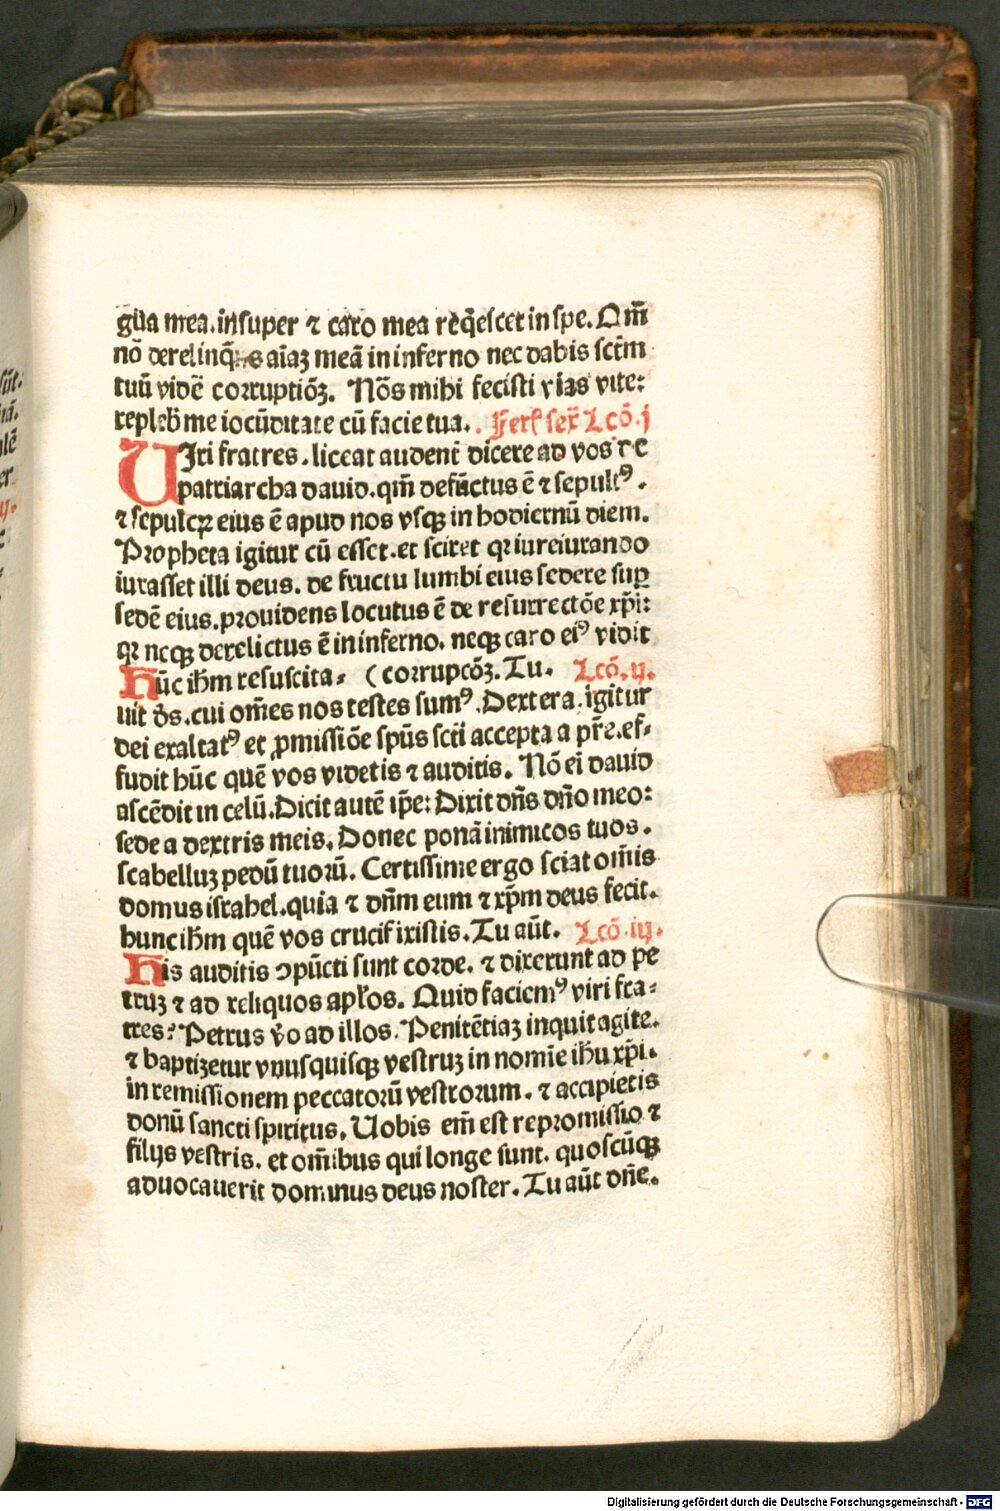 gūa mea.insuper ⁊ caro mea reqͥescet in spe. Qm̄
nō derelinq̄s aīaꝫ meā in inferno nec dabis sctm̄
tuū vidē corruptiōꝫ. Nōs mihi fecisti vias vite:
replebͥ me iocūditate cū facie tua. Ferͣ sex̄ Lcō.j
UIri fratres.liceat audent̄ dicere ad vos de
patriarcha dauid.qm̄ defūctus ē ⁊ sepultꝰ.
⁊ sepulcꝝ eius ē apud nos vsqꝫ in hodiernū diem.
Propheta igitur cū esset.et sciret qꝛ iureiurando
iurasset illi deus. de fructu lumbi eius sedere suꝑ
sedē eius.prouidens locutus ē de resurrectōe xp̄i:
qꝛ neqꝫ derelictus ē in inferno. neqꝫ caro eiꝰ vidit
Hūc ihm̄ resuscita⸗ (corrupcōꝫ. Tu. Lcō.ij.
uit d̄s.cui om̄es nos testes sumꝰ. Dextera.igitur
dei exaltatꝰ et ꝓmissiōe spūs sctī accepta a pr̄e.ef⸗
fudit hūc quē vos videtis ⁊ auditis. Nō eī dauid
ascēdit in celū.Dicit autē ip̄e: Dixit dn̄s dn̄o meo:
sede a dextris meis. Donec ponā inimicos tuos.
scabelluꝫ pedū tuorū. Certissime ergo sciat om̄is
domus israhel.quia ⁊ dn̄m eum ⁊ xp̄m deus fecit.
hunc ihm̄ quē vos crucifixistis. Tu aūt. Lcō.iij.
His auditis ꝯpūcti sunt corde. ⁊ dixerunt ad pe
truꝫ ⁊ ad reliquos apl̄os. Quid faciemꝰ viri fra⸗
tres? Petrus v̄o ad illos. Penitētiaꝫ inquit agite.
⁊ baptizetur vnusquisqꝫ vestruꝫ in nomīe ihū xp̄i.
in remissionem peccatorū vestrorum. ⁊ accipietis
donū sancti spiritus. Uobis em̄ est repromissio ⁊
filijs vestris. et om̄ibus qui longe sunt. quoscūqꝫ
aduocauerit dominus deus noster. Tu aūt dn̄e.
Digitalisierung gefördert durch die Deutsche Forschungsgemeinschaft - DFG